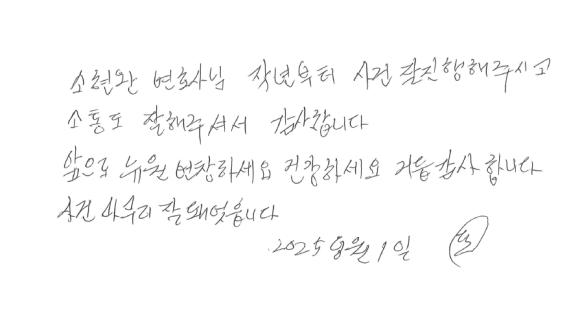 소현완 변호사님 작년부터 사건 잘진행해주시고
소통도 잘해주셔서 감사합니다
앞으로 뉴원 번창하세요 건강하세요 거듭감사 합니다
사건 마무리 잘돼엇읍니다
2025 9월 1일